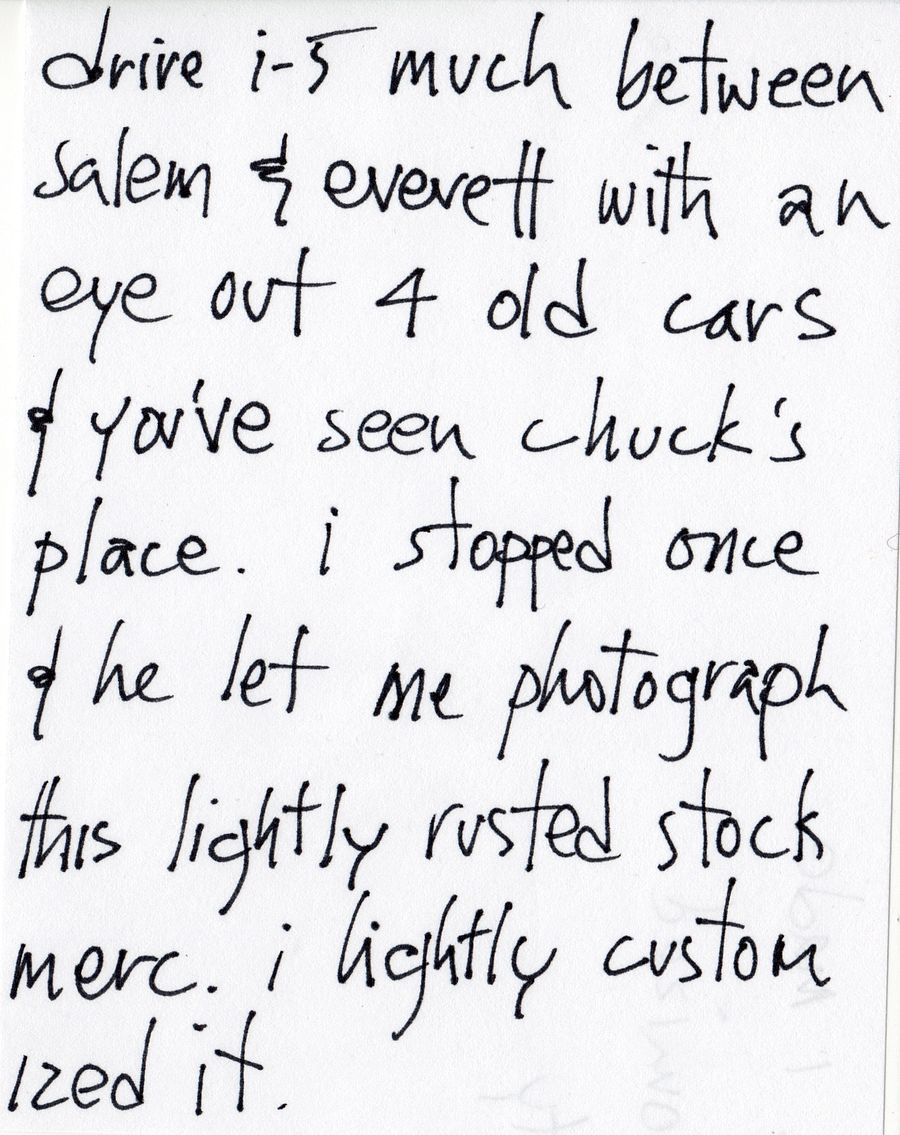 drive i-5 much between
salem & everett with an
eye out 4 old cars
& you've seen chuck's
place. i stopped once
& he let me photograph
this lightly rusted stock
merc. i lightly custom
ized it.